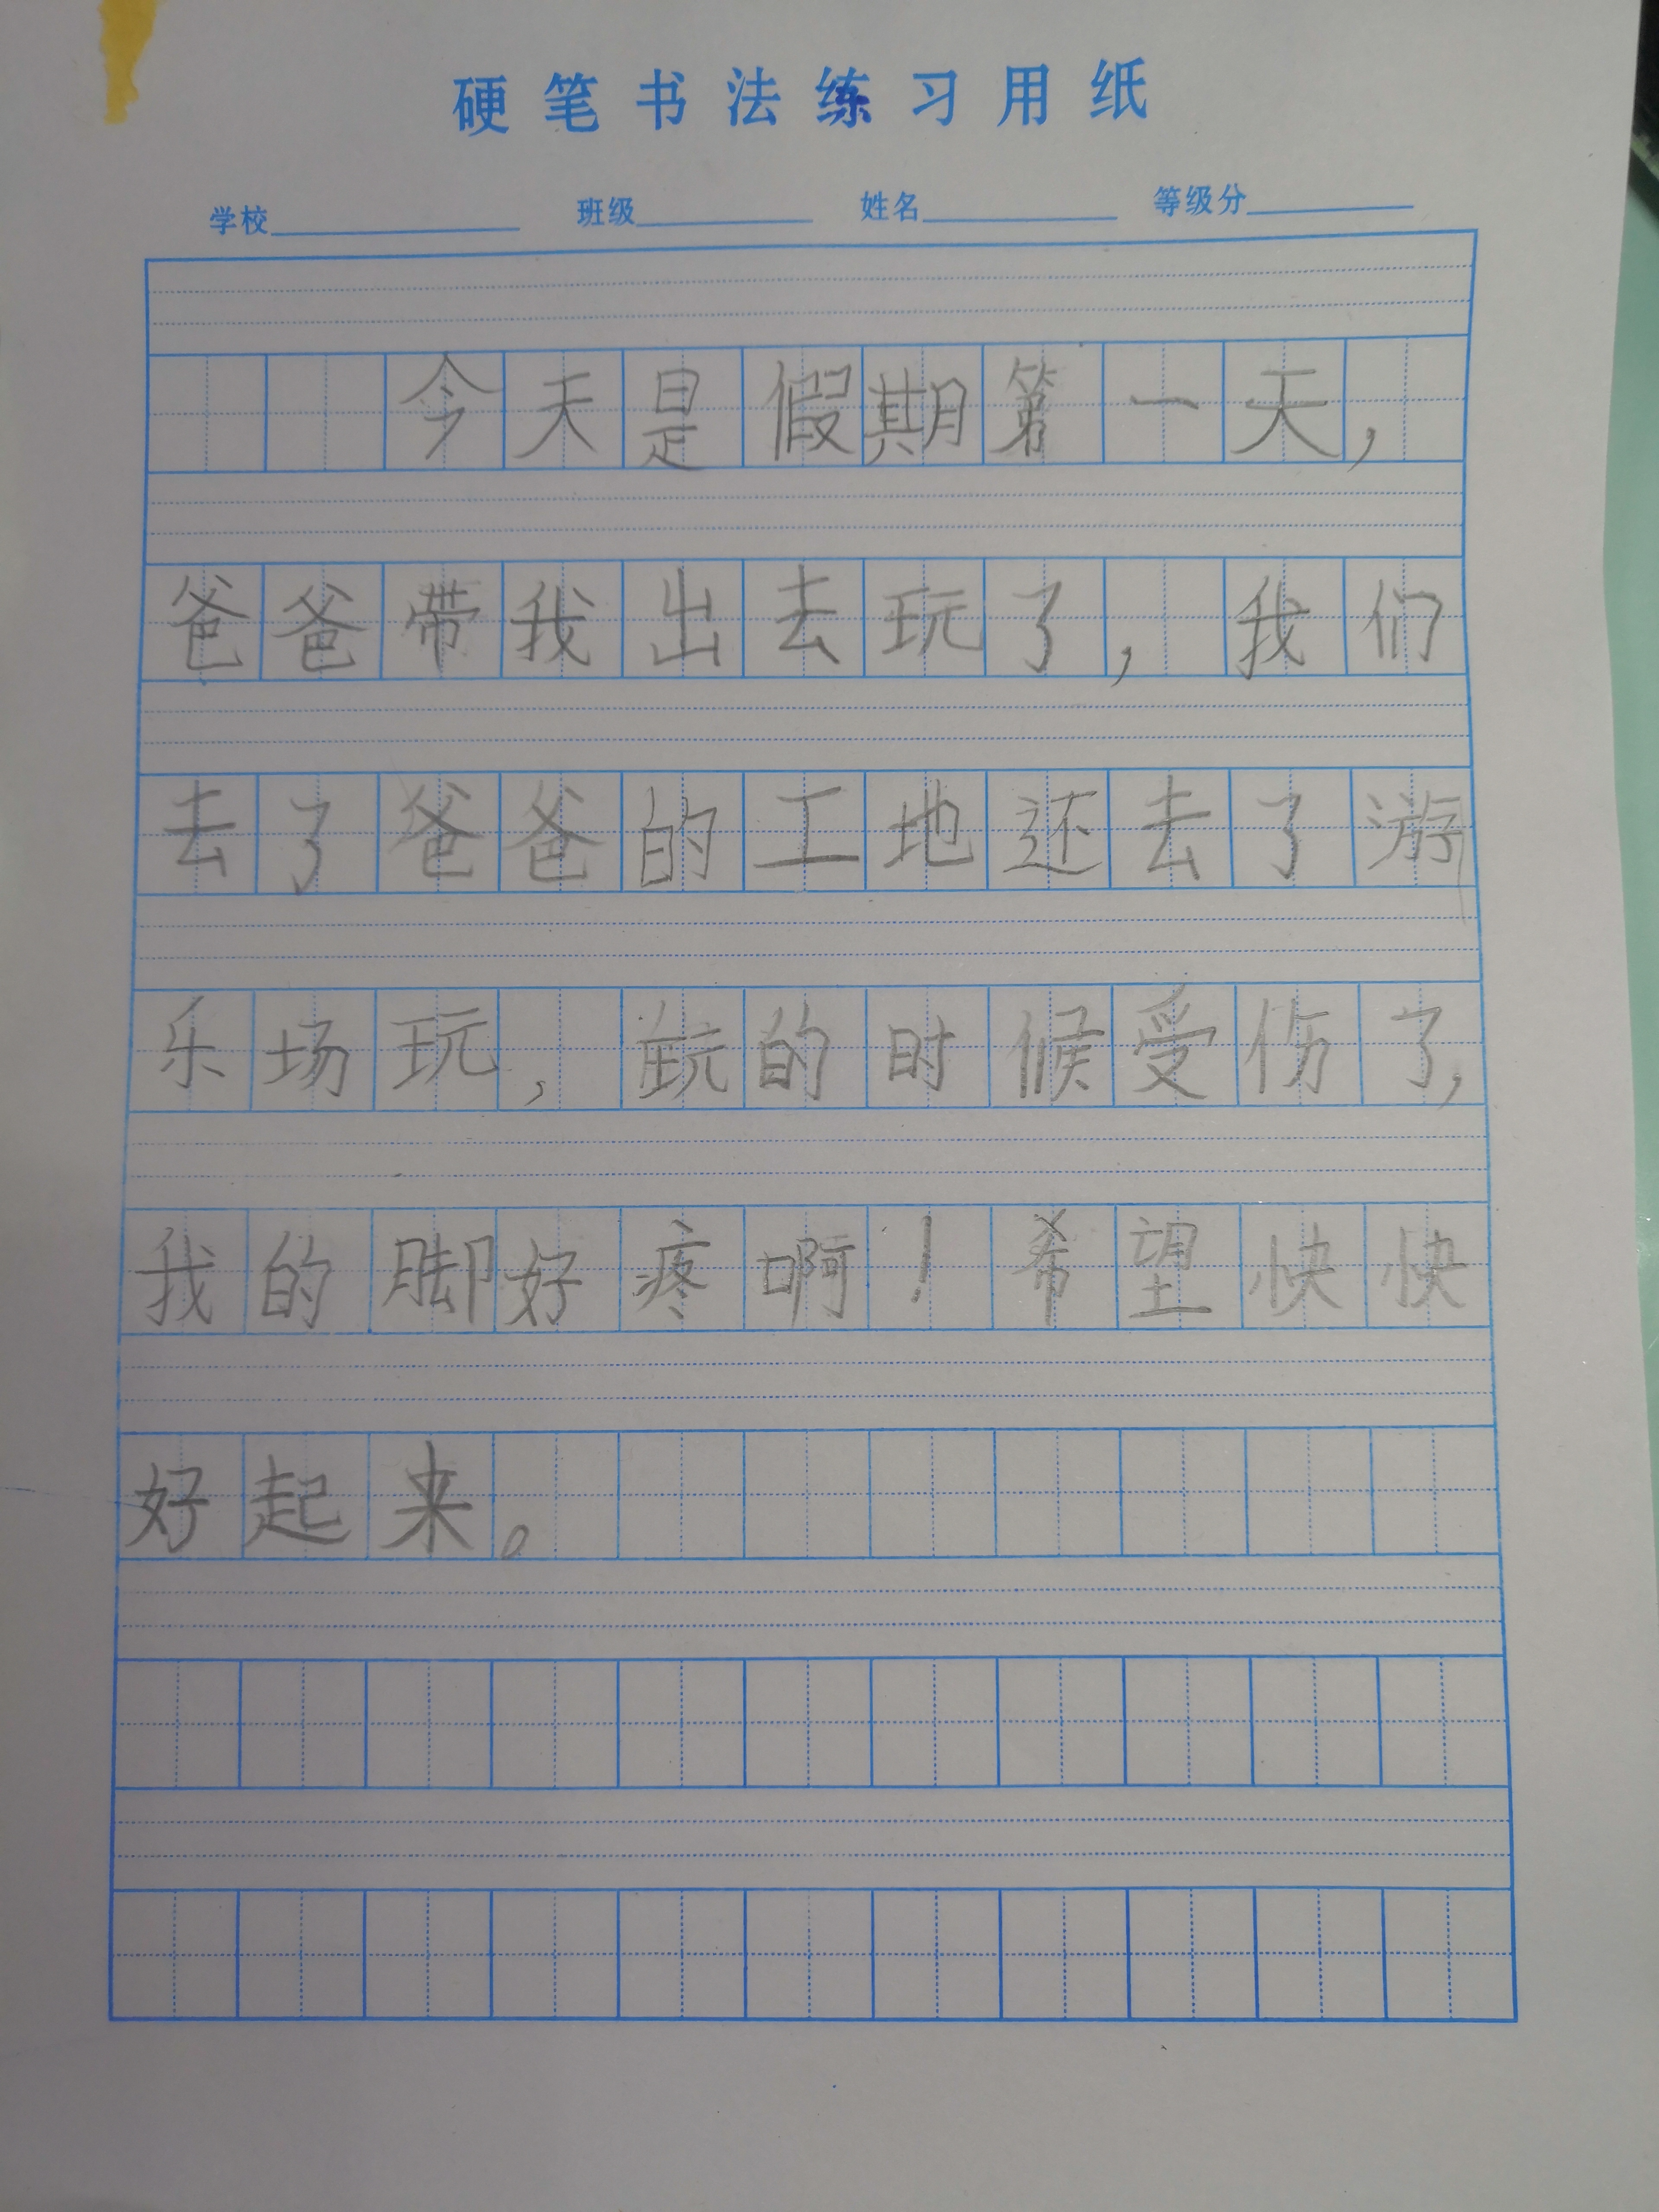 硬笔书法练习用纸
学校 班级 姓名 等级分
今天是假期第一天，
爸爸带我出去玩了，我们
去了爸爸的工地还去了游
乐场玩，玩的时候受伤了，
我的脚好疼啊！希望快快
好起来。